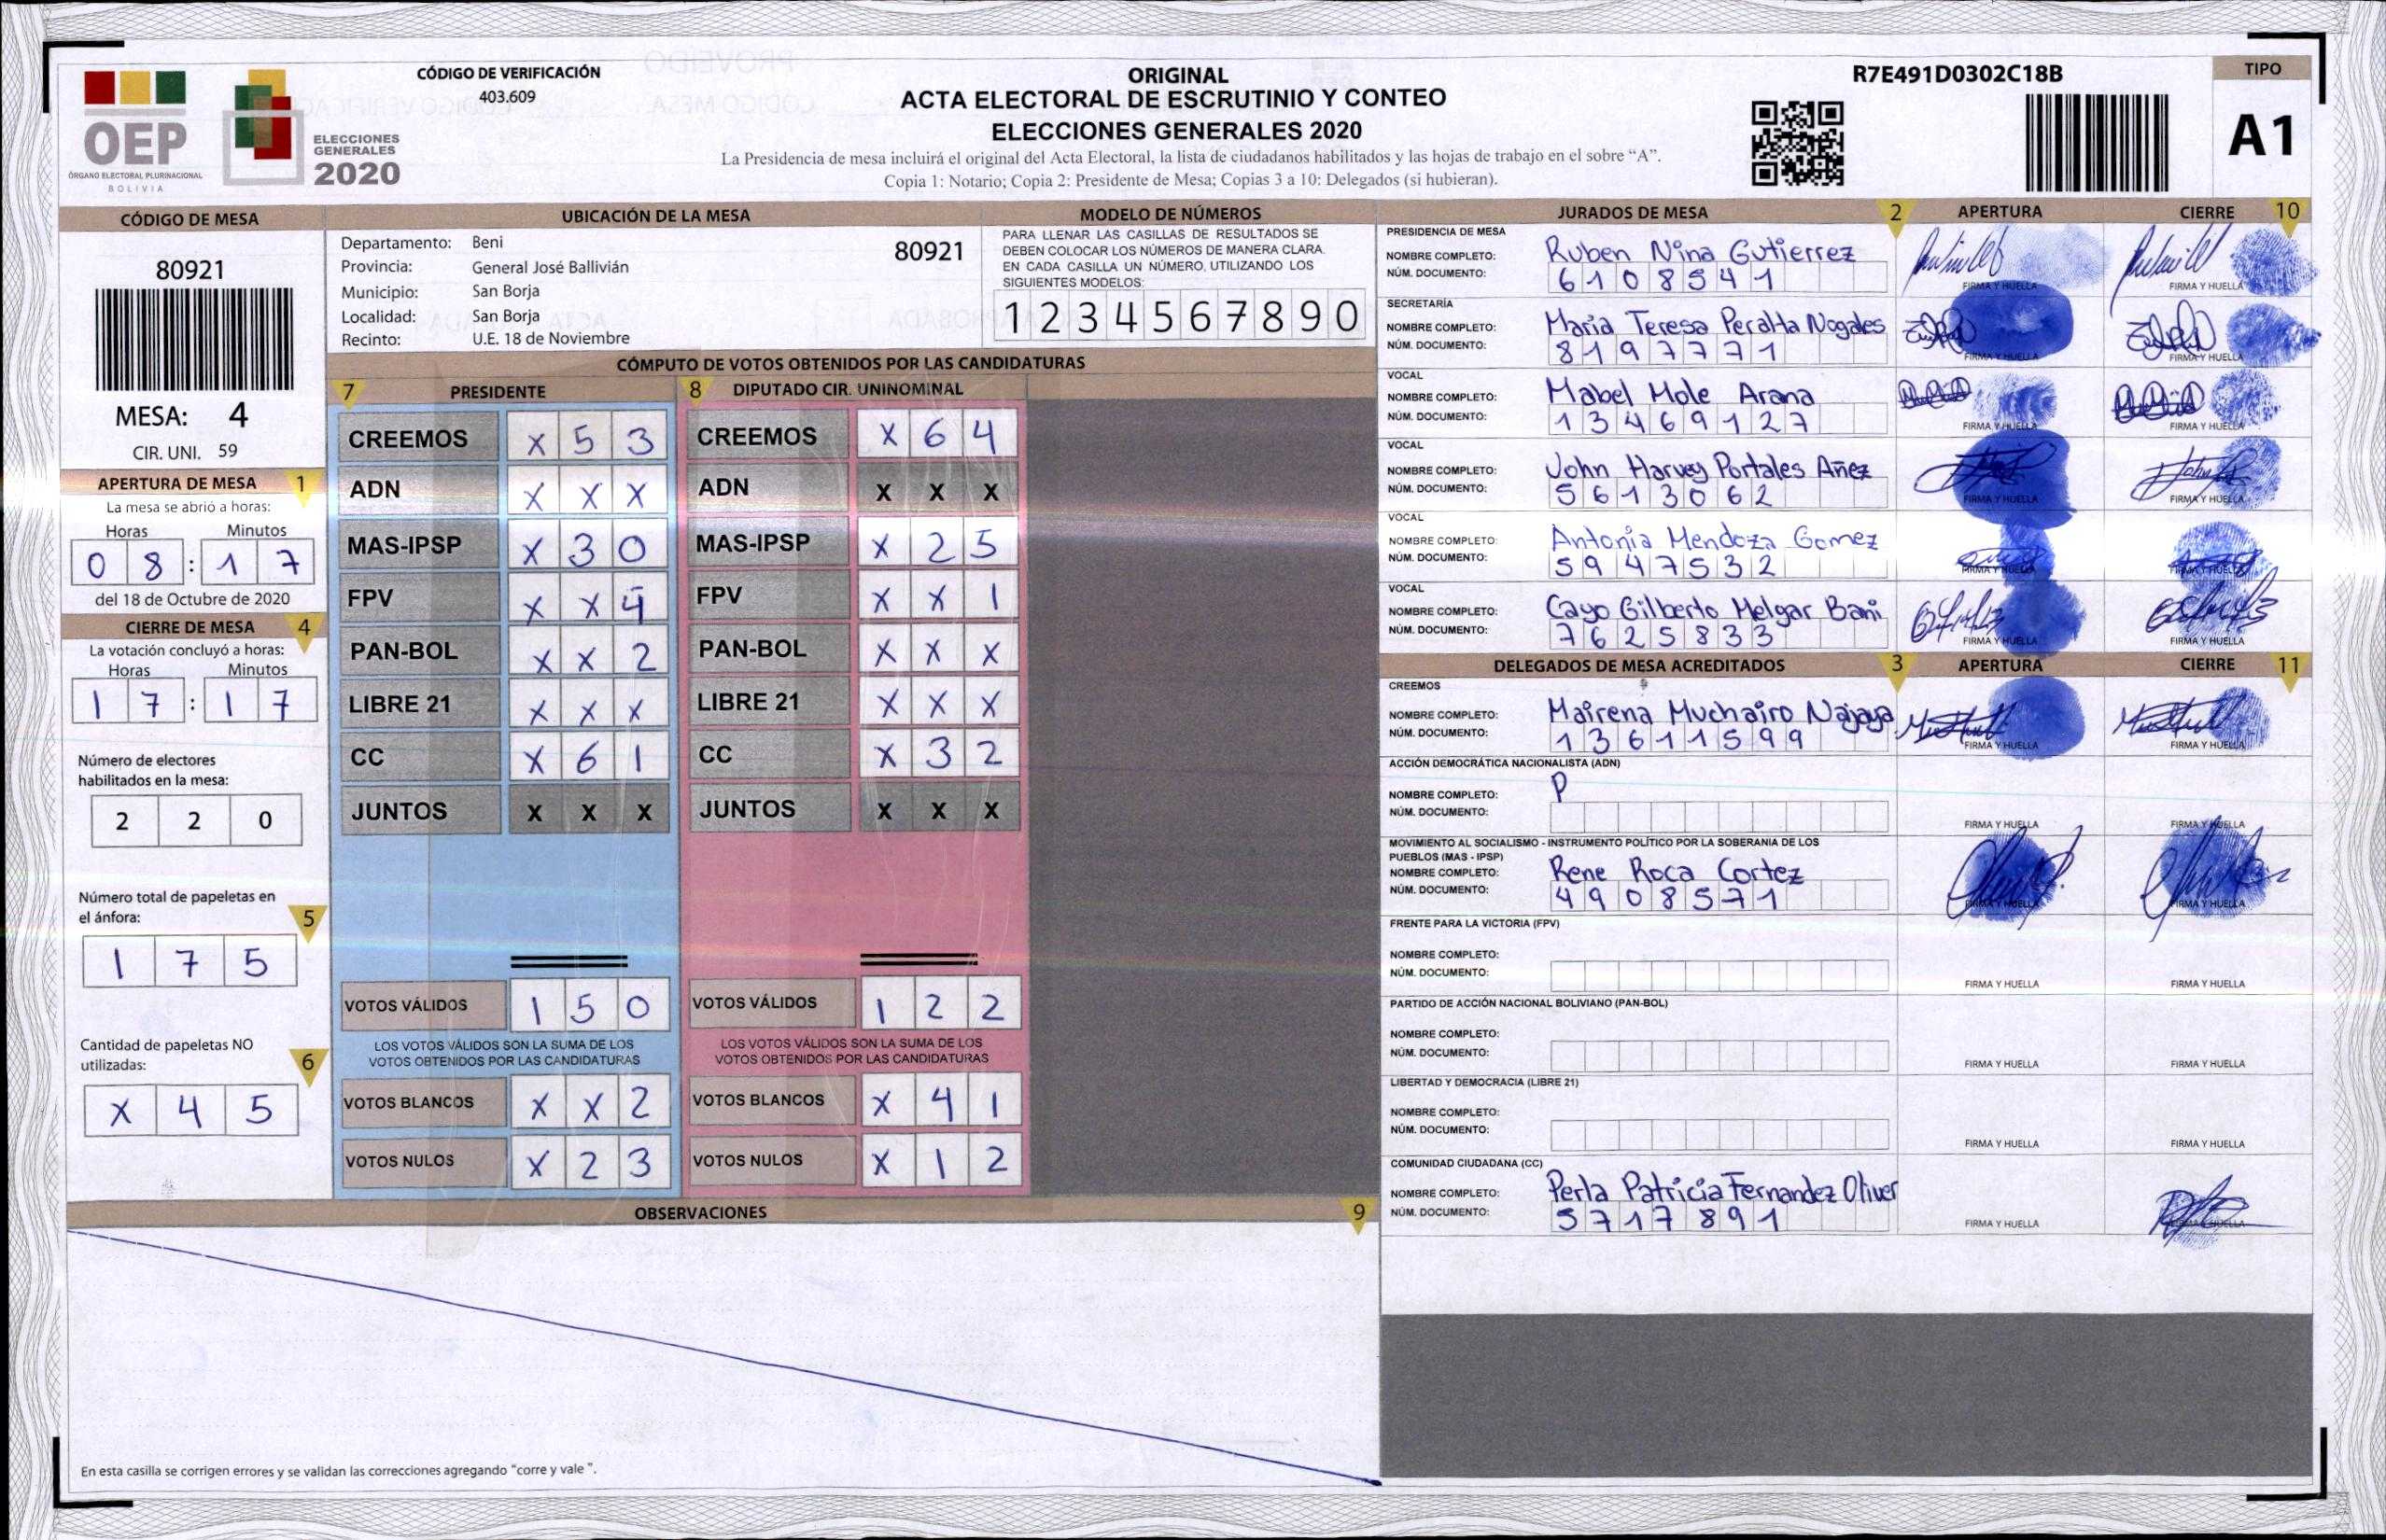 OEP
ÓRGANO ELECTORAL PLURINACIONAL
BOLIVIA
ELECCIONES
GENERALES
2020
CÓDIGO DE VERIFICACIÓN
403.609
ORIGINAL
ACTA ELECTORAL DE ESCRUTINIO Y CONTEO
ELECCIONES GENERALES 2020
La Presidencia de mesa incluirá el original del Acta Electoral, la lista de ciudadanos habilitados y las hojas de trabajo en el sobre “A”.
Copia 1: Notario; Copia 2: Presidente de Mesa; Copias 3 a 10: Delegados (si hubieran).
R7E491D0302C18B
TIPO
A1
CÓDIGO DE MESA
80921
MESA: 4
CIR. UNI. 59
APERTURA DE MESA 1
La mesa se abrió a horas:
Horas Minutos
0 8 : 1 7
del 18 de Octubre de 2020
CIERRE DE MESA 4
La votación concluyó a horas:
Horas Minutos
1 7 : 1 7
Número de electores
habilitados en la mesa:
2 2 0
Número total de papeletas en
el ánfora: 5
1 7 5
Cantidad de papeletas NO
utilizadas: 6
X 4 5
UBICACIÓN DE LA MESA
Departamento: Beni 80921
Provincia: General José Ballivián
Municipio: San Borja
Localidad: San Borja
Recinto: U.E. 18 de Noviembre
MODELO DE NÚMEROS
PARA LLENAR LAS CASILLAS DE RESULTADOS SE
DEBEN COLOCAR LOS NÚMEROS DE MANERA CLARA.
EN CADA CASILLA UN NÚMERO, UTILIZANDO LOS
SIGUIENTES MODELOS:
1 2 3 4 5 6 7 8 9 0
CÓMPUTO DE VOTOS OBTENIDOS POR LAS CANDIDATURAS
7 PRESIDENTE
CREEMOS X 5 3
ADN X X X
MAS-IPSP X 3 0
FPV X X 4
PAN-BOL X X 2
LIBRE 21 X X X
CC X 6 1
JUNTOS X X X
VOTOS VÁLIDOS 1 5 0
LOS VOTOS VÁLIDOS SON LA SUMA DE LOS
VOTOS OBTENIDOS POR LAS CANDIDATURAS
VOTOS BLANCOS X X 2
VOTOS NULOS X 2 3
8 DIPUTADO CIR. UNINOMINAL
CREEMOS X 6 4
ADN X X X
MAS-IPSP X 2 5
FPV X X 1
PAN-BOL X X X
LIBRE 21 X X X
CC X 3 2
JUNTOS X X X
VOTOS VÁLIDOS 1 2 2
LOS VOTOS VÁLIDOS SON LA SUMA DE LOS
VOTOS OBTENIDOS POR LAS CANDIDATURAS
VOTOS BLANCOS X 4 1
VOTOS NULOS X 1 2
OBSERVACIONES 9
En esta casilla se corrigen errores y se validan las correcciones agregando "corre y vale ".
JURADOS DE MESA 2 APERTURA CIERRE 10
PRESIDENCIA DE MESA
NOMBRE COMPLETO: Ruben Nina Gutierrez
NÚM. DOCUMENTO: 6108541 FIRMA Y HUELLA FIRMA Y HUELLA
SECRETARÍA
NOMBRE COMPLETO: Maria Teresa Peralta Nogales
NÚM. DOCUMENTO: 8197771 FIRMA Y HUELLA FIRMA Y HUELLA
VOCAL
NOMBRE COMPLETO: Mabel Mole Arana
NÚM. DOCUMENTO: 13469127 FIRMA Y HUELLA FIRMA Y HUELLA
VOCAL
NOMBRE COMPLETO: John Harvey Portales Añez
NÚM. DOCUMENTO: 5613062 FIRMA Y HUELLA FIRMA Y HUELLA
VOCAL
NOMBRE COMPLETO: Antonia Mendoza Gomez
NÚM. DOCUMENTO: 5947532 FIRMA Y HUELLA FIRMA Y HUELLA
VOCAL
NOMBRE COMPLETO: Cayo Gilberto Melgar Bani
NÚM. DOCUMENTO: 7625833 FIRMA Y HUELLA FIRMA Y HUELLA
DELEGADOS DE MESA ACREDITADOS 3 APERTURA CIERRE 11
CREEMOS
NOMBRE COMPLETO: Mairena Muchairo Najaya
NÚM. DOCUMENTO: 13611599 FIRMA Y HUELLA FIRMA Y HUELLA
ACCIÓN DEMOCRÁTICA NACIONALISTA (ADN)
NOMBRE COMPLETO: P
NÚM. DOCUMENTO: FIRMA Y HUELLA FIRMA Y HUELLA
MOVIMIENTO AL SOCIALISMO - INSTRUMENTO POLÍTICO POR LA SOBERANIA DE LOS
PUEBLOS (MAS - IPSP)
NOMBRE COMPLETO: Rene Roca Cortez
NÚM. DOCUMENTO: 4908571 FIRMA Y HUELLA FIRMA Y HUELLA
FRENTE PARA LA VICTORIA (FPV)
NOMBRE COMPLETO:
NÚM. DOCUMENTO: FIRMA Y HUELLA FIRMA Y HUELLA
PARTIDO DE ACCIÓN NACIONAL BOLIVIANO (PAN-BOL)
NOMBRE COMPLETO:
NÚM. DOCUMENTO: FIRMA Y HUELLA FIRMA Y HUELLA
LIBERTAD Y DEMOCRACIA (LIBRE 21)
NOMBRE COMPLETO:
NÚM. DOCUMENTO: FIRMA Y HUELLA FIRMA Y HUELLA
COMUNIDAD CIUDADANA (CC)
NOMBRE COMPLETO: Perla Patricia Fernandez Oliver
NÚM. DOCUMENTO: 5717891 FIRMA Y HUELLA FIRMA Y HUELLA